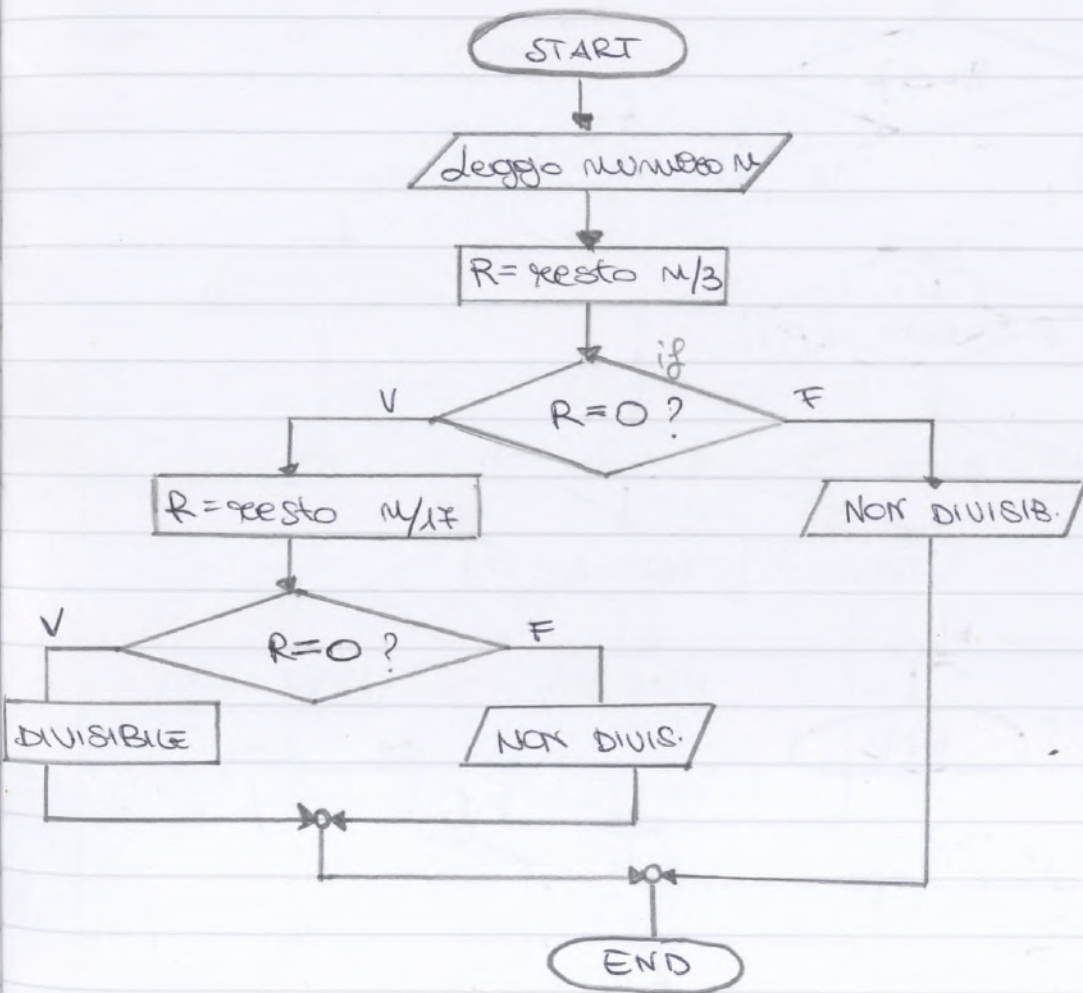 START
Leggo numero n
R = resto n/3
if
V
R = 0 ?
F
R = resto n/17
NON DIVISIB.
V
R = 0 ?
F
DIVISIBILE
NON DIVIS.
END